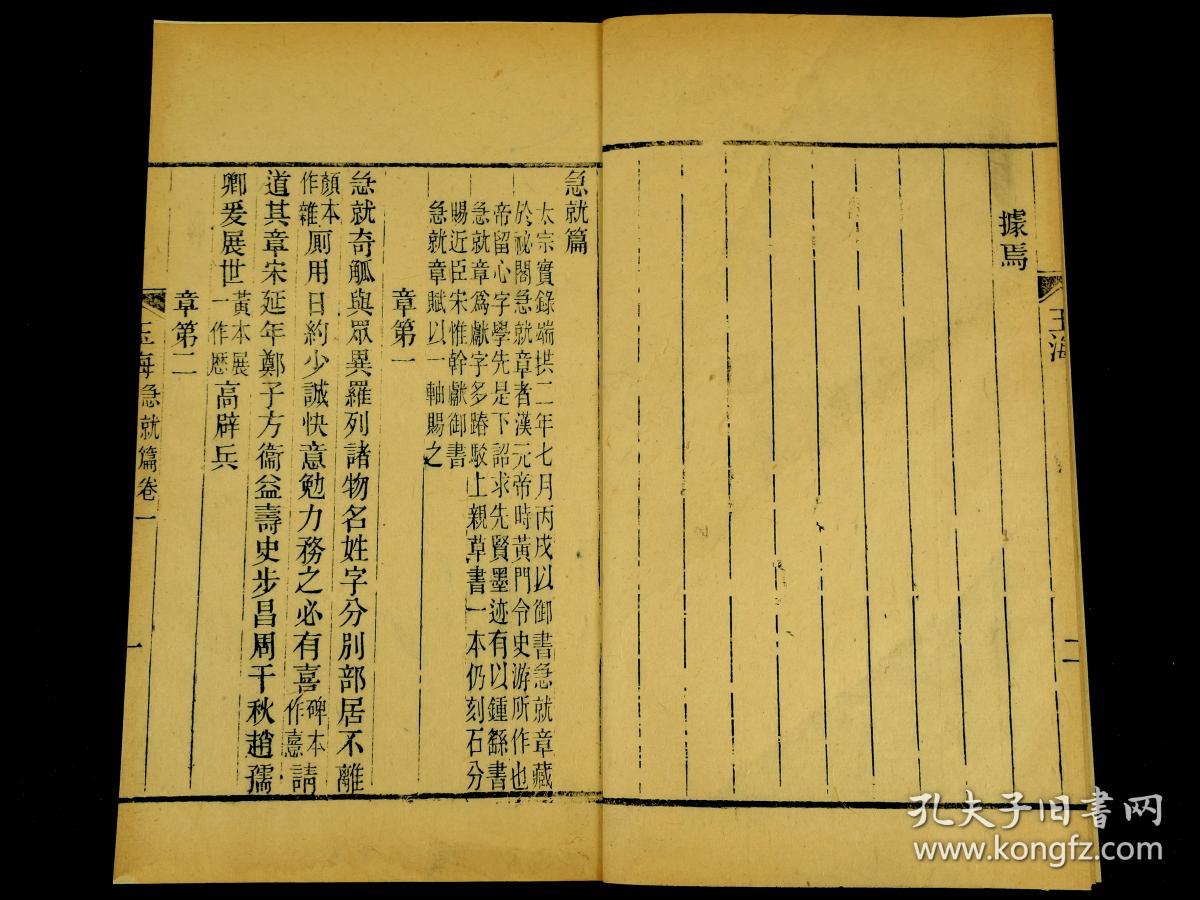 據焉
玉海
二
急就篇
太宗實錄端拱二年七月丙戌以御書急就章藏
於祕閣急就章者漢元帝時黃門令史游所作也
帝留心字學先是下詔求先賢墨迹有以鍾繇書
急就章爲獻字多踳駁上親草書一本仍刻石分
賜近臣宋惟幹獻御書
急就章賦以一軸賜之
章第一
急就奇觚與眾異羅列諸物名姓字分別部居不雜
顏本作離廁用日約少誠快意勉力務之必有喜碑本作憙請
道其章宋延年鄭子方衞益壽史步昌周千秋趙孺
卿爰展世黃本展一作歷高辟兵
章第二
玉海急就篇卷一
一
孔夫子旧书网
www.kongfz.com